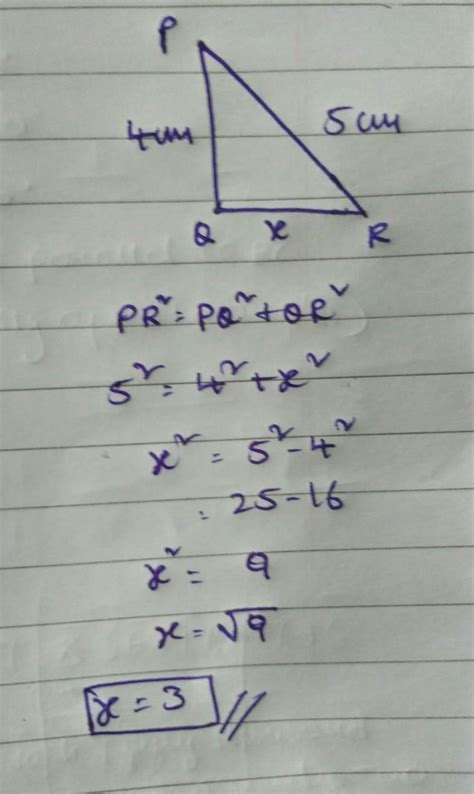 P
4cm 5cm
Q x R
PR² = PQ² + QR²
5² = 4² + x²
x² = 5² - 4²
= 25 - 16
x² = 9
x = √9
x = 3 //